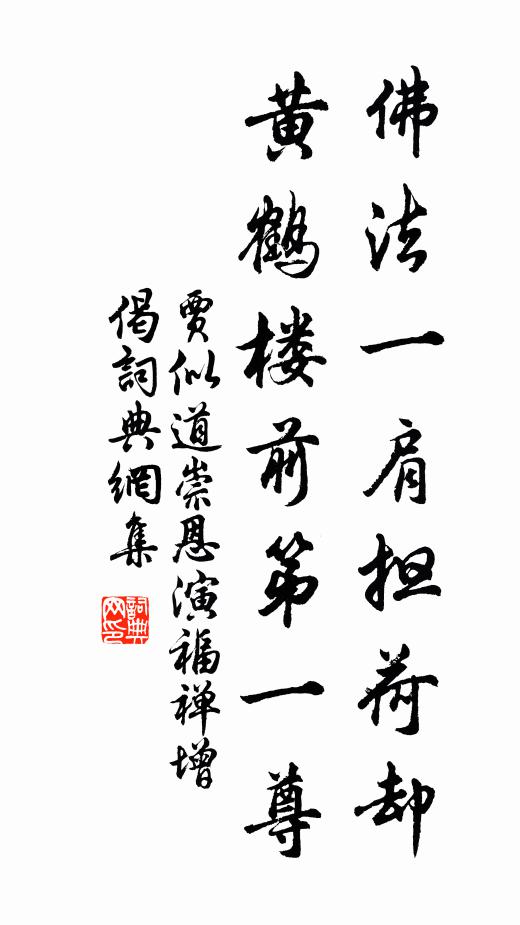 佛法一肩担荷却
黄鹤楼前第一尊
贾似道崇恩演福禅增
偈詞典網集
詞典網印